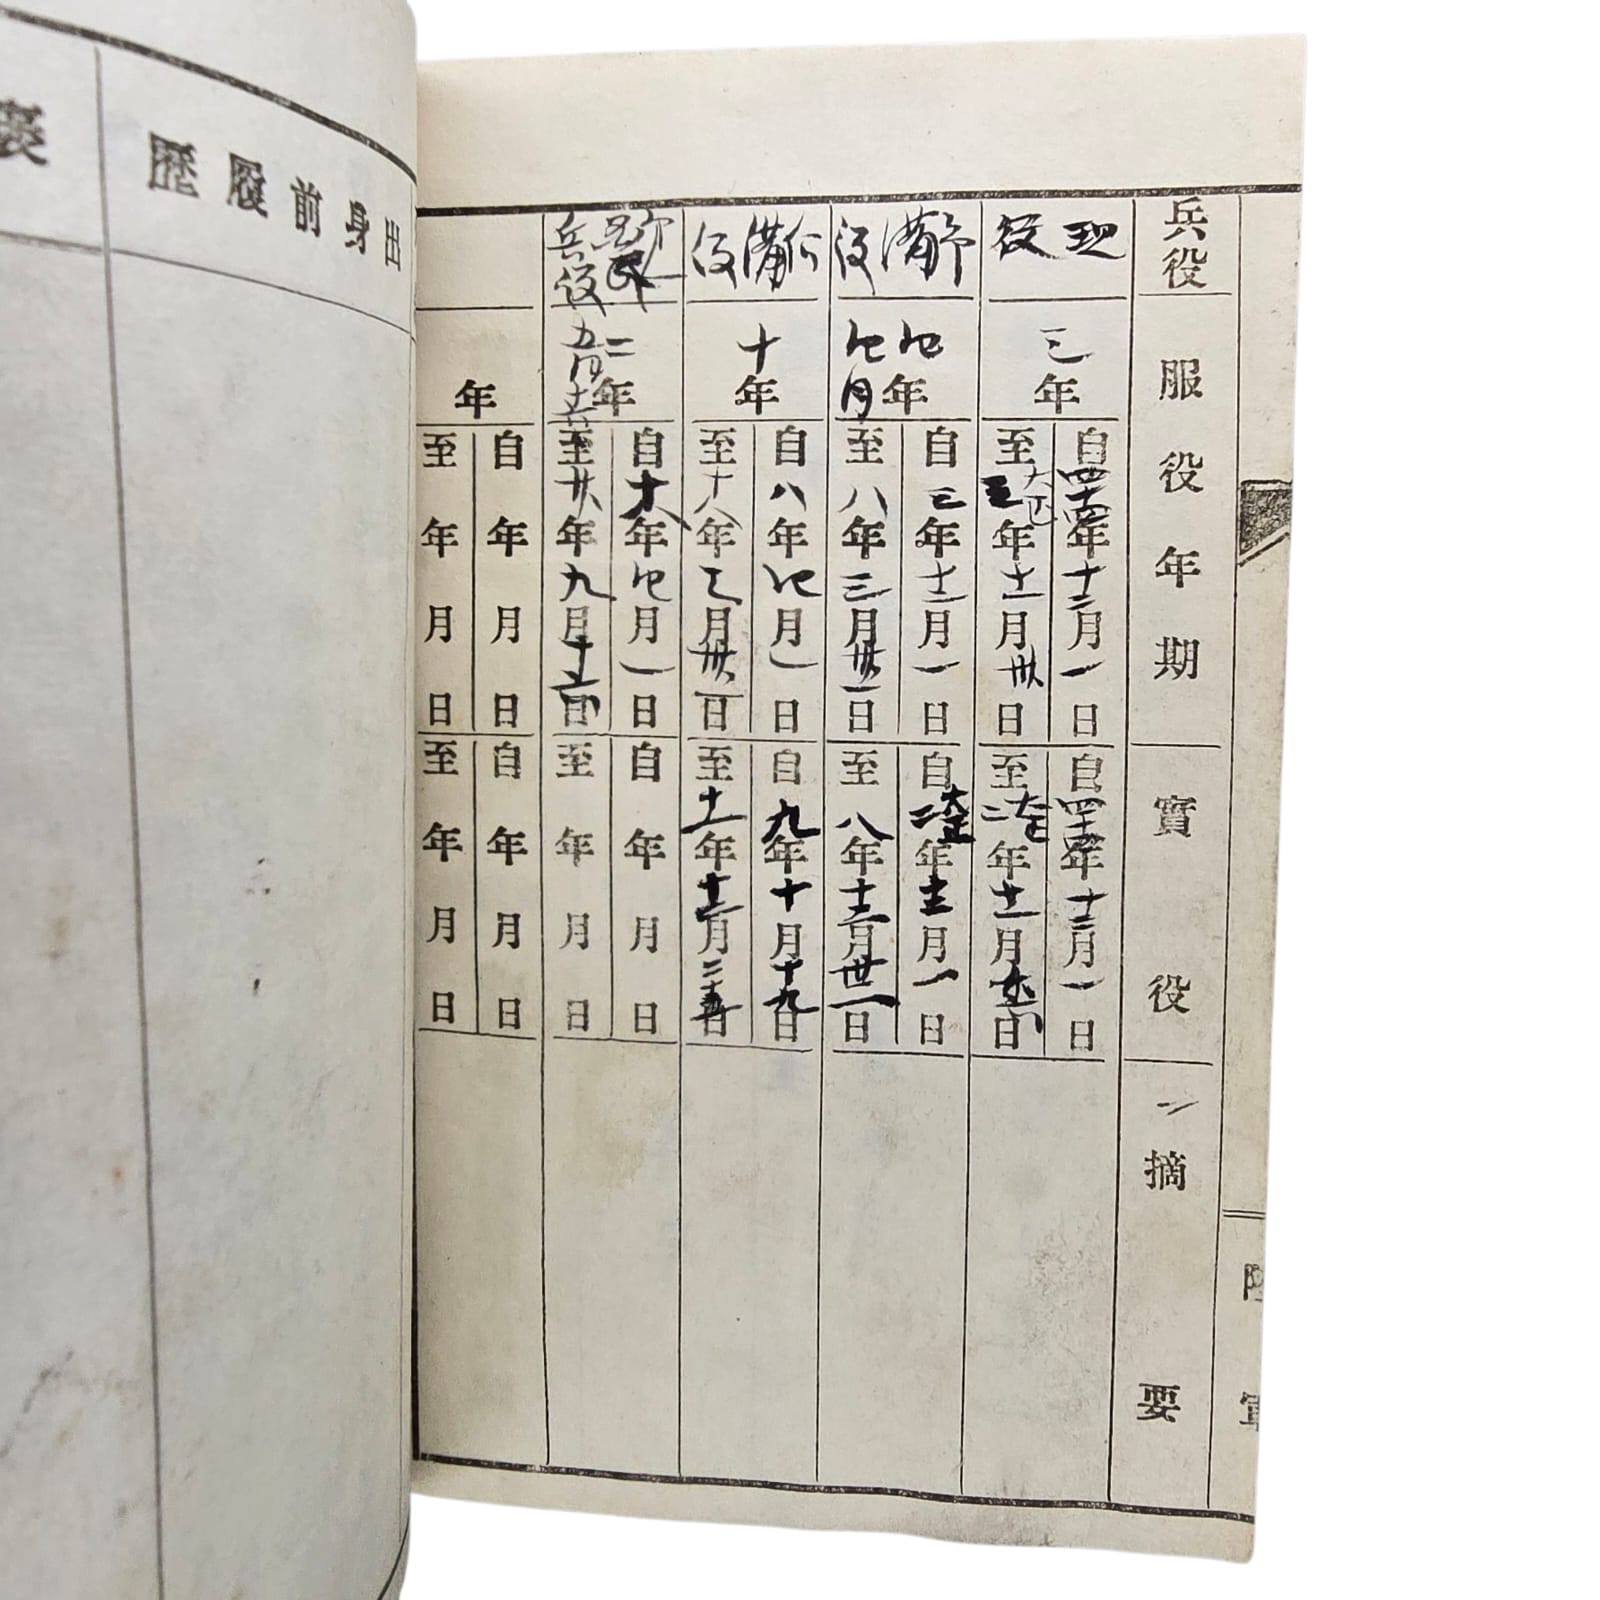 兵役
服役年期
實役
摘要
現役
三年
自四十四年十二月一日
至大正三年十一月卅日
自四十四年十二月一日
至大正二年十一月
日
豫備役
七年
四月
自三年十二月一日
至八年三月卅一日
自大正二年十二月一日
至八年十二月卅一日
後備役
十年
自八年四月一日
至十八年三月卅一日
自九年十月十九日
至十一年十二月二十五日
第一國民兵役
二年
五月十
自十八年四月一日
至廿年九月十
日
自 年 月 日
至 年 月 日
年
自 年 月 日
至 年 月 日
自 年 月 日
至 年 月 日
出身前履歷